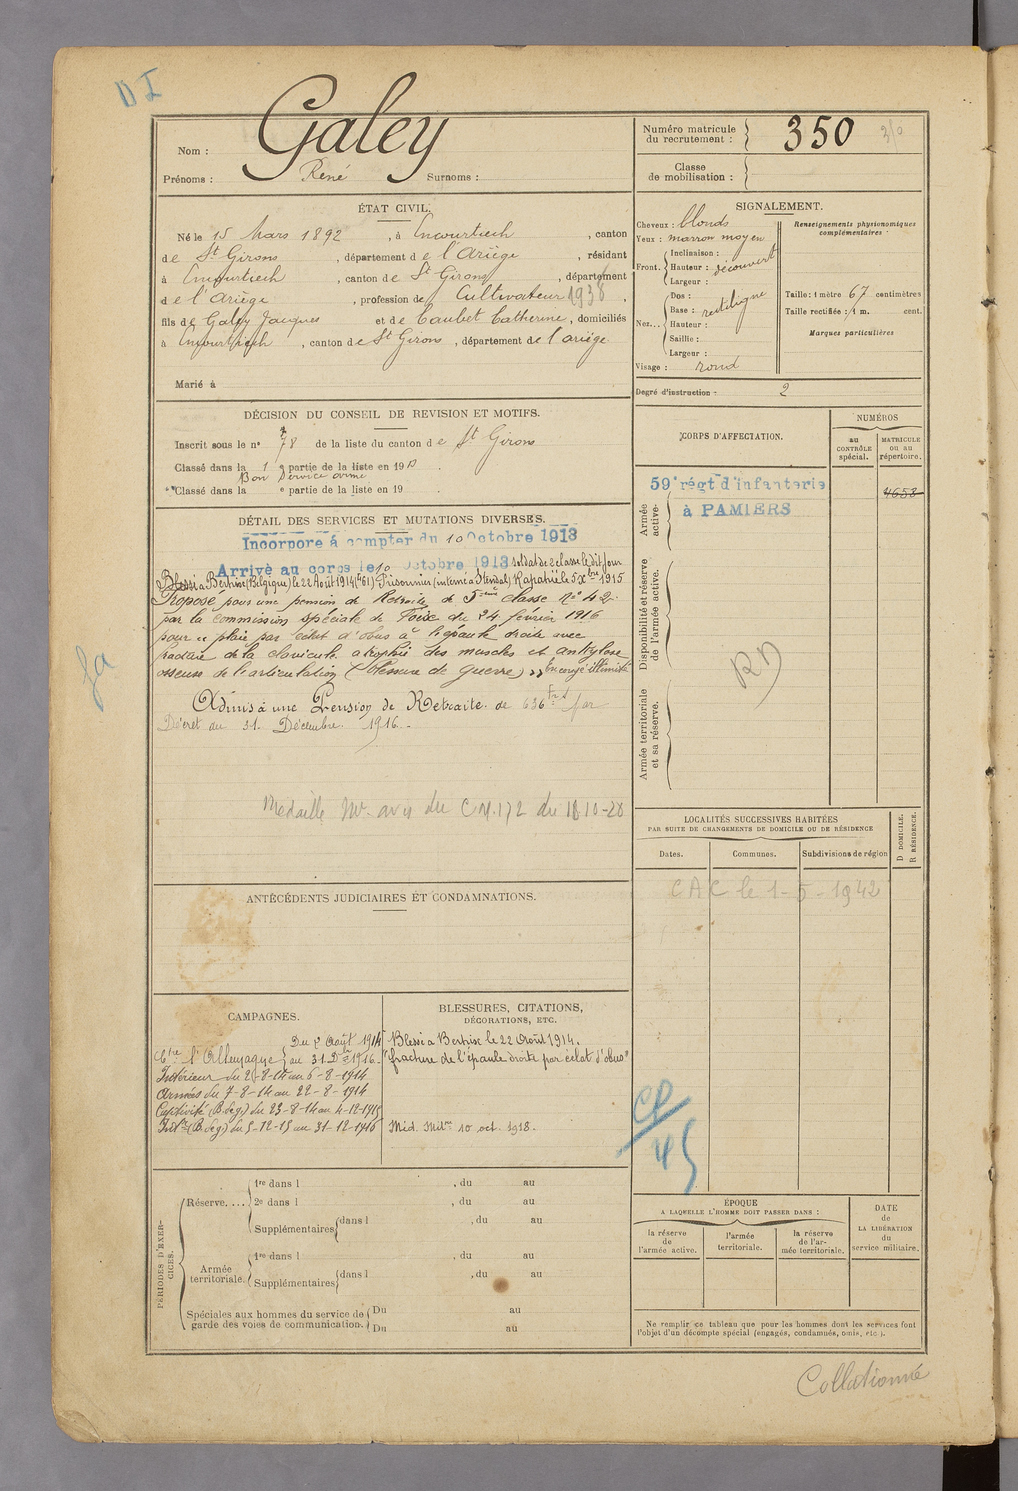 DI
Nom : Galey
Prénoms : René Surnoms :
Numéro matricule du recrutement : 350
Classe de mobilisation :
ÉTAT CIVIL.
Né le 15 Mars 1892, à Encourtiech, canton
de St Girons, département de l'Ariège, résidant
à Encourtiech, canton de St Girons, département
de l'Ariège, profession de Cultivateur 1936
fils de Galey Jacques et de Caubet Catherine, domiciliés
à Encourtiech, canton de St Girons, département de l'ariège.
Marié à
SIGNALEMENT.
Cheveux : blonds
Yeux : marron moyen
Front. Inclinaison :
Hauteur : découvert
Largeur :
Nez... Dos :
Base : rectiligne
Hauteur :
Saillie :
Largeur :
Visage : rond
Renseignements physionomiques complémentaires
Taille : 1 mètre 67 centimètres
Taille rectifiée : 1 m. cent.
Marques particulières
Degré d'instruction : 2
DÉCISION DU CONSEIL DE REVISION ET MOTIFS.
Inscrit sous le n° 78 de la liste du canton de St Girons
Classé dans la 1e partie de la liste en 1913
Bon Service armé
Classé dans la e partie de la liste en 19
DÉTAIL DES SERVICES ET MUTATIONS DIVERSES.
Incorporé à compter du 10 Octobre 1913
Arrivé au corps le 10 Octobre 1913 soldat de 2e classe le dit jour
Blessé à Bertrix (Belgique) le 22 Août 1914 Prisonnier (interné à Stendal) Rapatrié le 5 Xbre 1915
Proposé pour une pension de Retraite de 5ème classe N° 42
par la commission spéciale de Foix du 24 février 1916
pour plaie par éclat d'obus à l'épaule droite avec
fracture de la clavicule atrophie des muscles et ankylose
osseuse de l'articulation (blessure de guerre) En congé illimité
Admis à une Pension de Retraite de 636 frs par
Décret du 31 Décembre 1916.
Médaille Mre avis du CM 172 du 18-10-20
CORPS D'AFFECTATION.
NUMÉROS
au CONTRÔLE spécial.
MATRICULE ou au répertoire.
Armée active.
59e régt d'infanterie
à PAMIERS
4658
Disponibilité et réserve de l'armée active.
RD
Armée territoriale et sa réserve.
LOCALITÉS SUCCESSIVES HABITÉES
PAR SUITE DE CHANGEMENTS DE DOMICILE OU DE RÉSIDENCE
D DOMICILE.
R RÉSIDENCE.
Dates. Communes. Subdivisions de région
CAC le 1-5-1942
ANTÉCÉDENTS JUDICIAIRES ET CONDAMNATIONS.
CAMPAGNES.
Ctre l'Allemagne Du 2 Août 1914
au 31 Dbre 1916.
Intérieur du 2-8-14 au 6-8-1914
Armées du 7-8-14 au 22-8-1914
Captivité (B.deg) du 23-8-14 au 4-12-1915
Intr (B.deg) du 5-12-15 au 31-12-1916
BLESSURES, CITATIONS,
DÉCORATIONS, ETC.
Blessé à Bertrix le 22 Août 1914.
"fracture de l'épaule droite par éclat d'obus"
Méd. Milre 10 oct. 1918.
CP/45
PÉRIODES D'EXERCICES.
Réserve.... 1re dans l , du au
2e dans l , du au
Supplémentaires dans l , du au
Armée territoriale. 1re dans l , du au
Supplémentaires dans l , du au
Spéciales aux hommes du service de Du au
garde des voies de communication. Du au
ÉPOQUE
A LAQUELLE L'HOMME DOIT PASSER DANS :
la réserve de l'armée active.
l'armée territoriale.
la réserve de l'armée territoriale.
DATE de LA LIBÉRATION du service militaire.
Ne remplir ce tableau que pour les hommes dont les services font
l'objet d'un décompte spécial (engagés, condamnés, omis, etc.).
Collationné